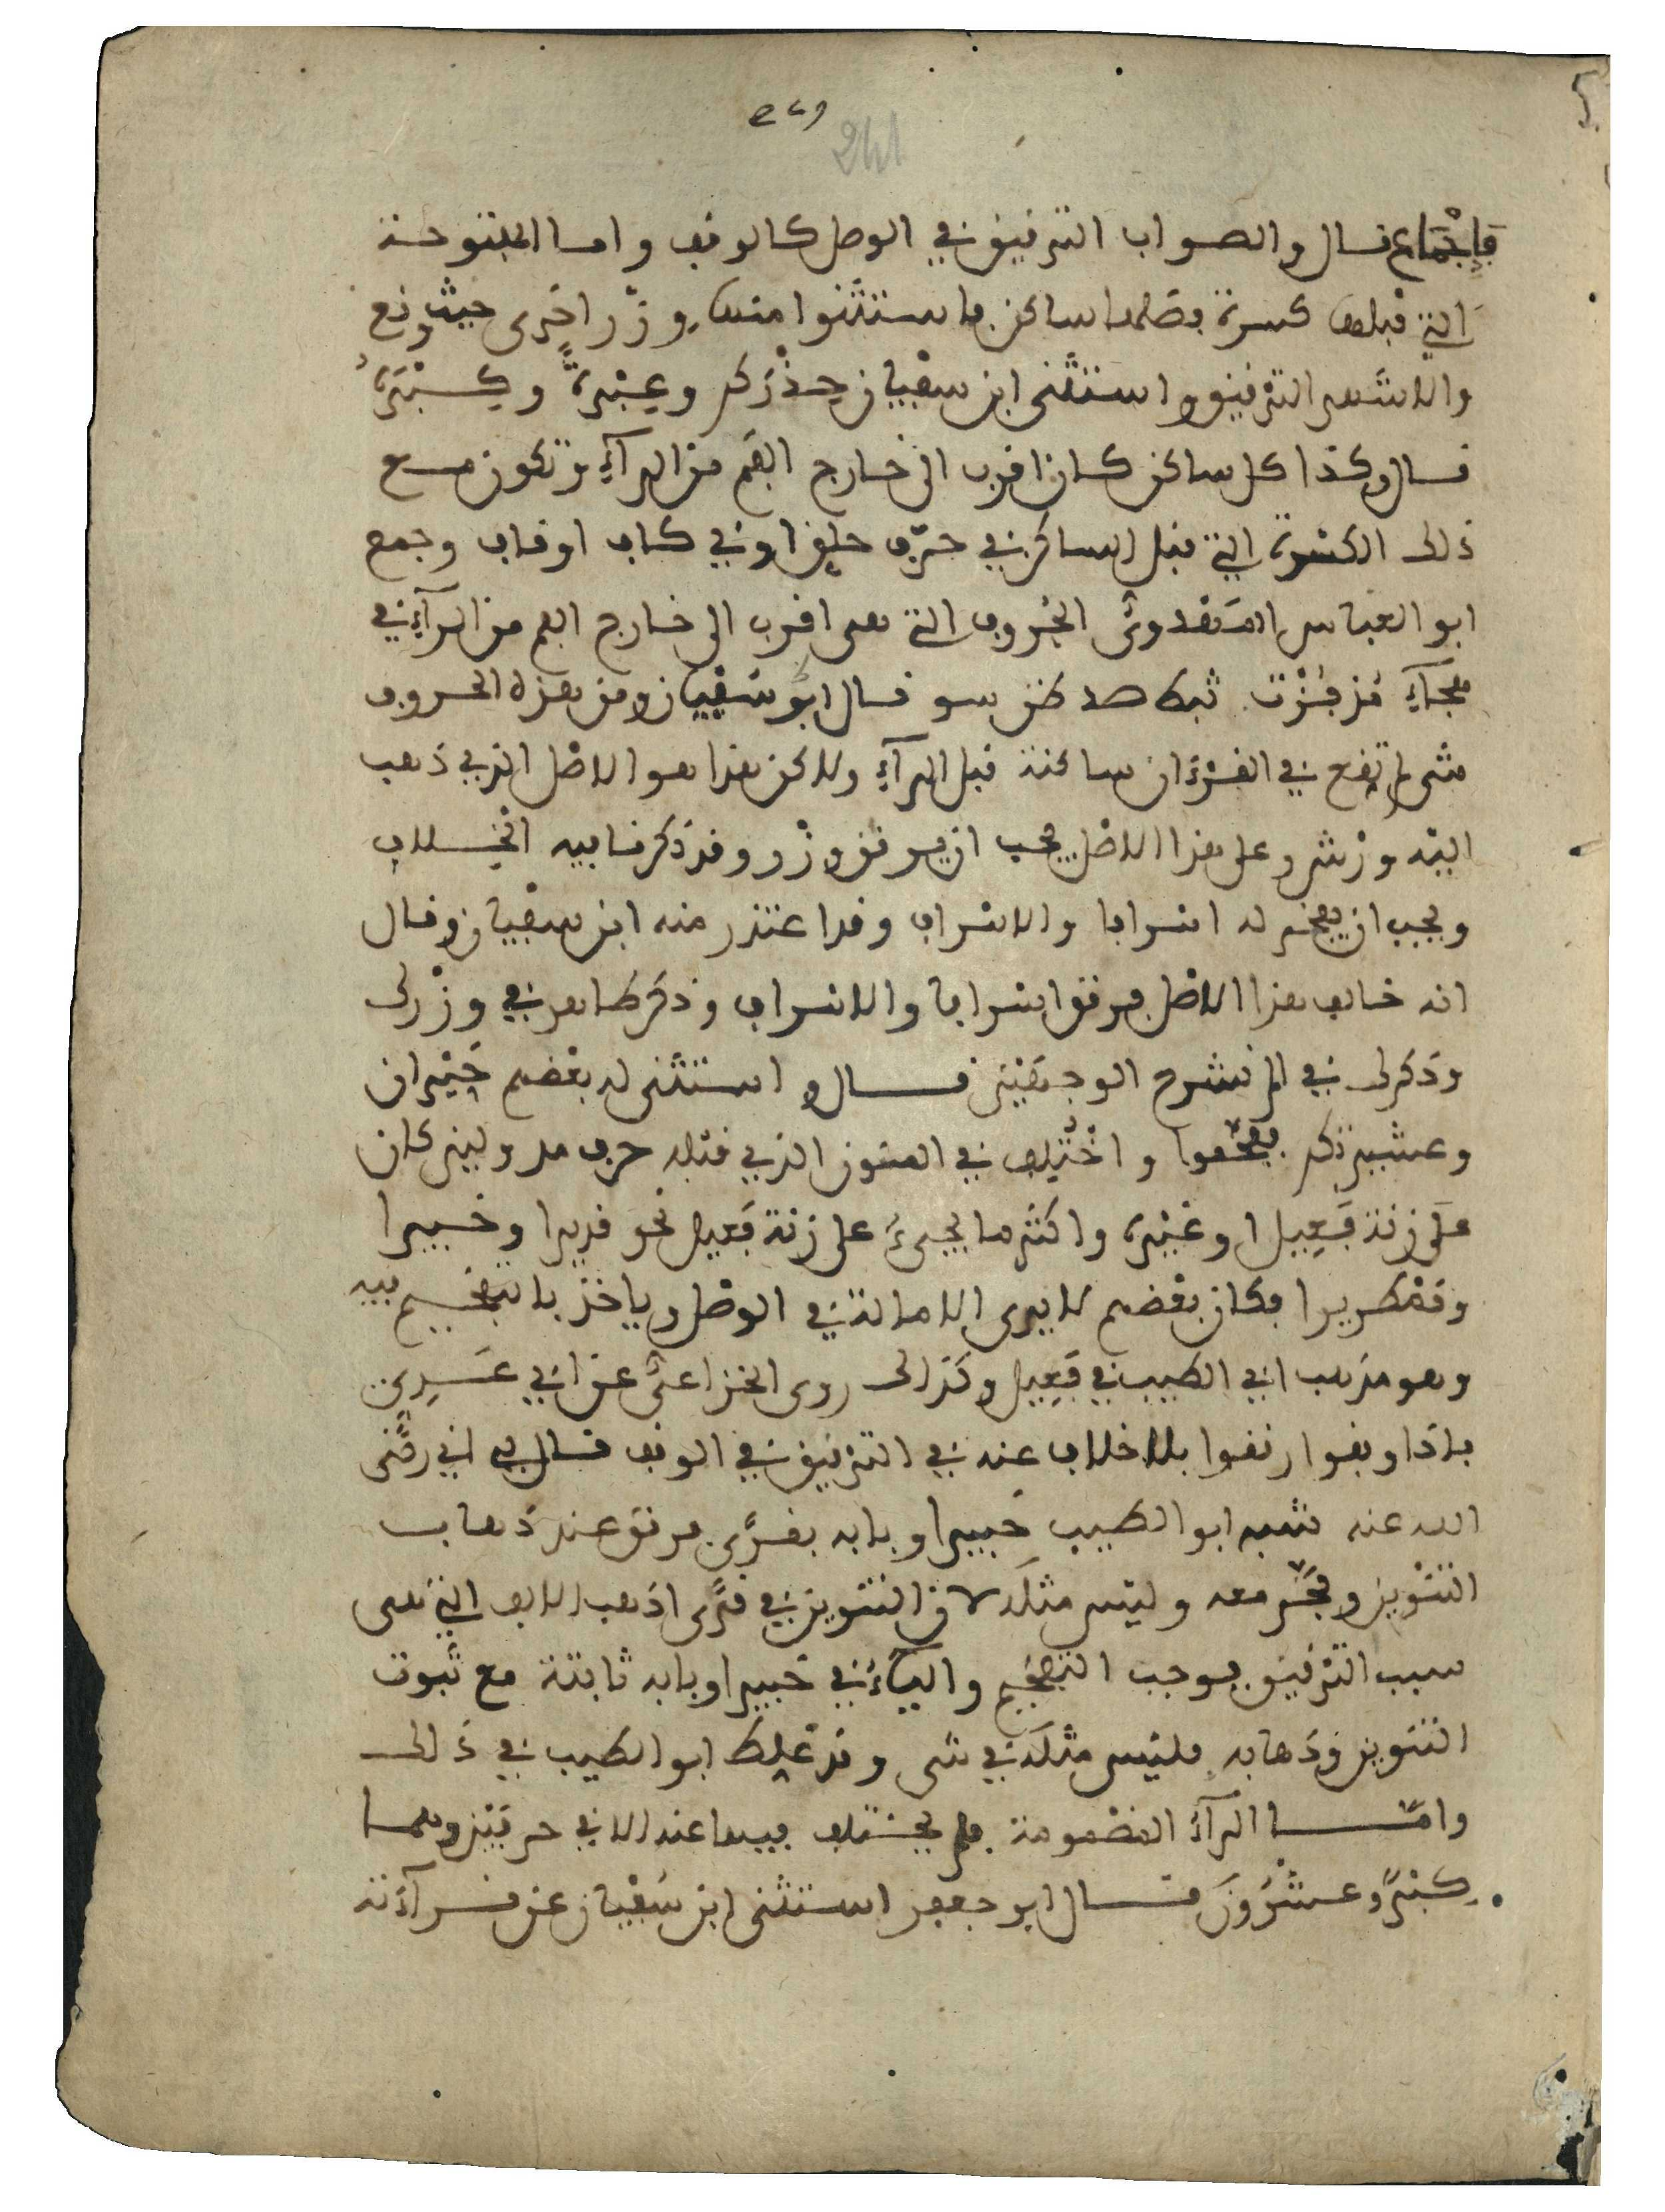 241
فإجماع قال والصواب الترقيق في الوصل كالوقف واما المفتوحة
التي قبلها كسرة فصلها ساكن فاستثنوا منها وزر اخرى حيث وقع
والاشهر الترقيق واستثنى ابن سفيان حذركم وعبرة وكبره
قال وكذا كل ساكن كان اقرب الى خارج الفم من الرآء تكون مع
ذلك الكسرة التي قبل الساكن في حرف حلق او في كاف او قاف وجمع
ابو العباس المهدوي الحروف التي هي اقرب الى خارج الفم من الرآء في
هجآء قال ابو سفيان ومن هذه الحروف
شى لم تقع في القرءان ساكنة قبل الرآء ولاكن هذا هو الاصل الذي ذهب
اليه ورش وعلى هذا الاصل يجب ان يرقق وزر وقد ذكرنا فيه الخلاف
ويجب ان يفخم له اسرافا والاسراف وقد اعتذر منه ابن سفيان وقال
انه خالف هذا الاصل فرقق اسرافا والاسراف وذكر طاهر في وزرك
وذكرك في الم نشرح الوجهين قال واستثنى له بعضهم حيران
وعشيرتكم ففخموا واختلف في المنون الذي قبله حرف مد ولين كان
على زنة فعيل او غيره واكثر ما يجىء على زنة فعيل نحو قديرا وخبيرا
وقمطريرا فكان بعضهم لا يرى الامالة في الوصل وياخذ بالتفخيم فيه
وهو مذهب ابي الطيب في فعيل وكذلك روى الخزاعي عن ابي عدي
فاذا وقفوا رققوا بلا خلاف عنه في الترقيق في الوقف قال لي ابي رضى
الله عنه شبه ابو الطيب خبيرا وبابه بقرى فرقق عند ذهاب
التنوين وفخم معه وليس مثله لان التنوين في قرى اذهب الالف التي هي
سبب الترقيق فوجب التفخيم والياء في خبيرا وبابه ثابتة مع ثبوت
التنوين وذهابه فليس مثله في شى وقد غلط ابو الطيب في ذلك
واما الرآء المضمومة فلم يختلف فيها عنه الا في حرفين وهما
كبر وعشرون قال ابو جعفر استثنى ابن سفيان عن قرآءته